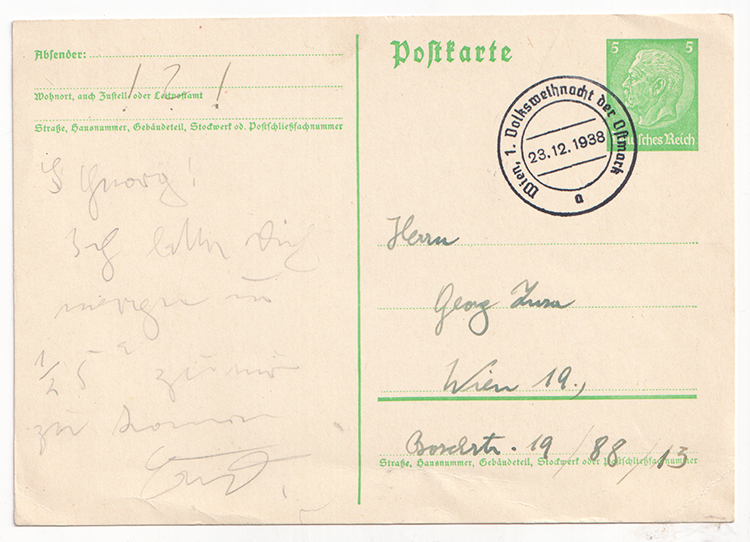 Absender:
! 2 !
Wohnort, auch Zustell- oder Leitpostamt
Straße, Hausnummer, Gebäudeteil, Stockwerk od. Postschließfachnummer
Georg!
Ich bitte Dich
morgen um
1/2 5 zu mir
zu kommen
Postkarte
5 5
Deutsches Reich
Wien, 1. Volksweihnacht der Ostmark
23.12.1938
a
Herrn
Georg
Wien 19.,
Boschstr. 19/88/13
Straße, Hausnummer, Gebäudeteil, Stockwerk oder Postschließfachnummer